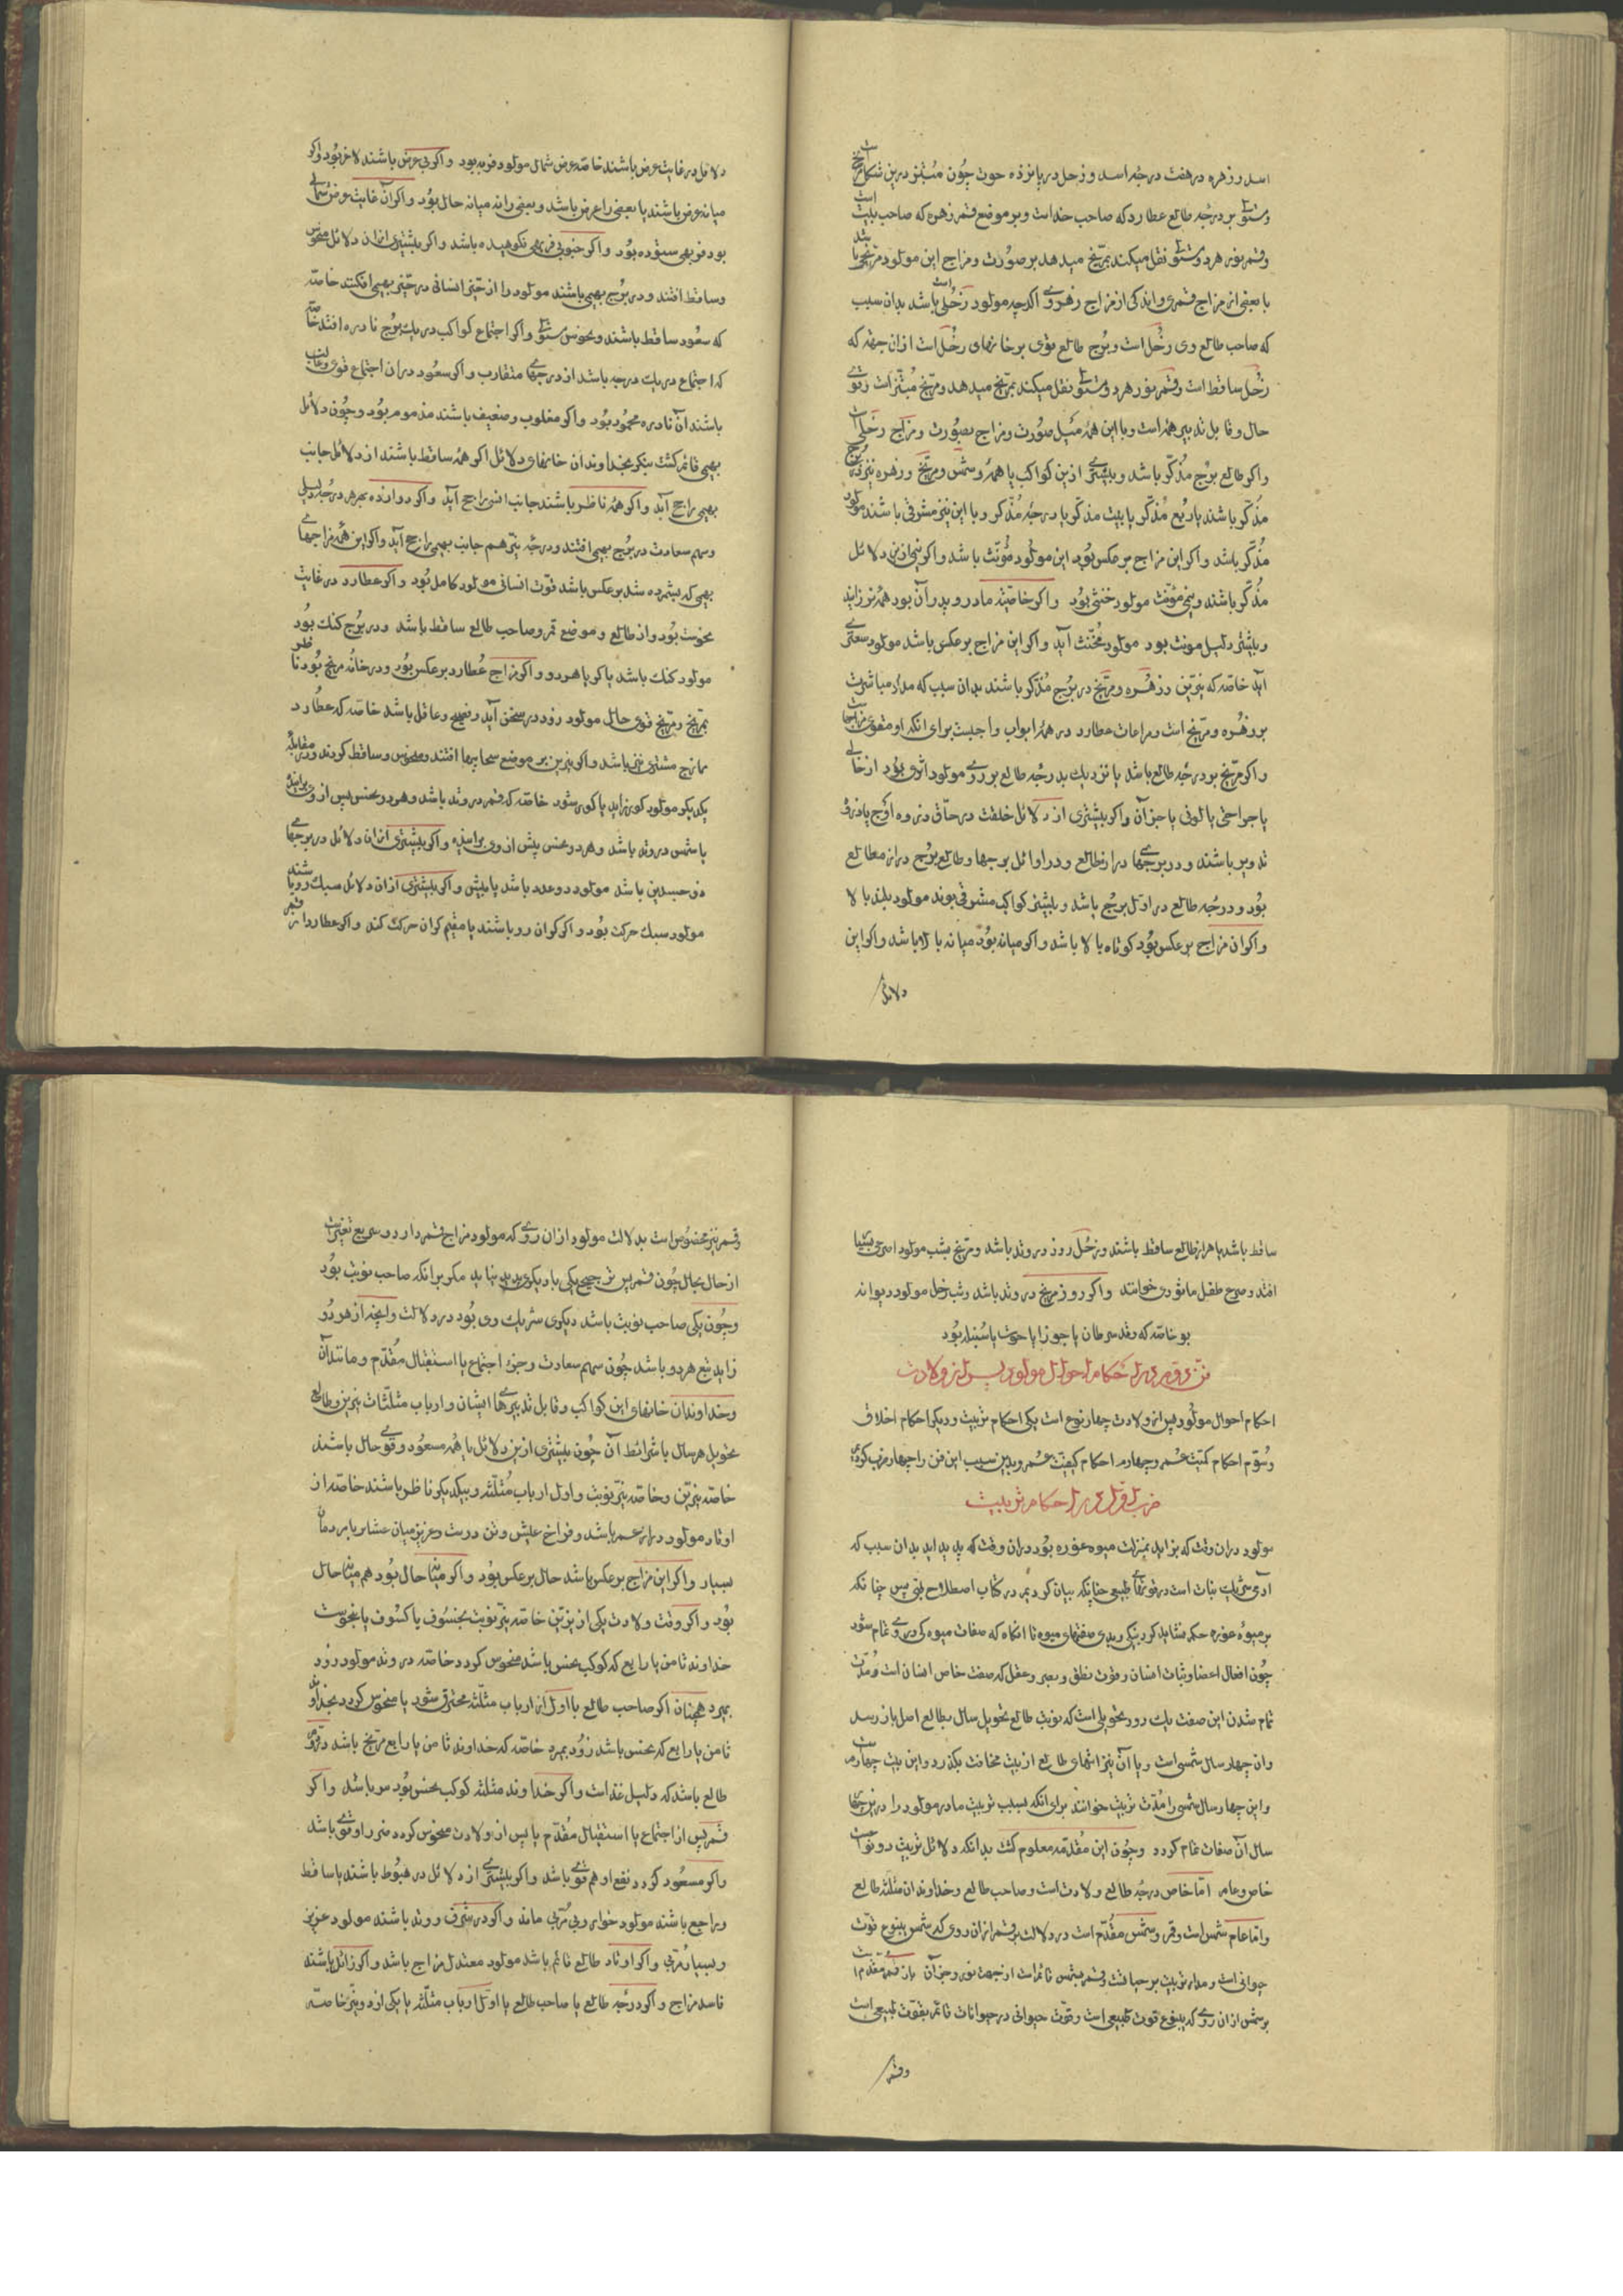 اسد و زهره در هفت درجه اسد و زحل در پانزده حوت چون مبتز درین شکل مریخ است
و مستولی بر درجه طالع عطارد که صاحب حد است و بر موضع قمر زهره که صاحب بیت است
و قمر نور هر دو مستولی نقل میکند بمریخ میدهد بر صورت و مزاج این مولود مریخی باشد
با بعضی از مزاج قمری و اندکی از مزاج زهروی اگرچه مولود زحلی باشد بدان سبب
که صاحب طالع وی زحل است و برج طالع قوی بر خانهای زحل است ازان جهة که
زحل ساقط است و قمر نور هر دو مستولی نقل میکند بمریخ میدهد و مریخ مبتز است و قوی
حال و قابل تدبیر همه است و با این همه میل صورت و مزاج بصورت و مزاج زحلی است
و اگر طالع برج مذکر باشد و بیشتری ازین کواکب یا همه و شمس و مریخ و زهره نیز در برج
مذکر باشند یا ربع مذکر یا بیت مذکر یا درجه مذکر و با این نیز مشرقی باشند مولود
مذکر باشد و اگر این مزاج بر عکس بود این مولود مؤنث باشد و اگر نیمی ازین دلائل
مذکر باشند و نیمی مؤنث مولود خنثی بود و اگر خاصیة مادر و پدر آن بود همه نر زاید
و بیشتر دلیل مونث بود مولود مخنث آید و اگر این مزاج بر عکس باشد مولود سعتری
آید خاصه که نیرین و زهره و مریخ در برج مذکر باشند بدان سبب که مدار مباشرت
بر زهره و مریخ است و مراعات عطارد در همه ابواب واجبست برای انکه او مقوی مزاجها است
و اگر مریخ بر درجه طالع باشد یا نزدیک بدرجه طالع بر روی مولود اثری بود از خالی
یا جراحتی یا لونی یا جز آن و اگر بیشتری از دلائل خلقت در حاق ذروه اوج یا ذروه
تدویر باشند و در برجهای دراز طالع و در اوائل برجها و طالع برج دراز مطالع
بود و درجه طالع در اول برج باشد و بیشتر کواکب مشرقی بوند مولود بلند بالا
و اگر ان مزاج بر عکس بود کوتاه بالا باشد و اگر میانه بود میانه بالا باشد و اگر این
دلائل
دلائل در غایت عرض باشند خاصه عرض شمالی مولود فربه بود و اگر بی عرض باشند لاغر بود و اگر
میانه عرض باشند یا بعضی را عرض باشد و بعضی را نه میانه حال بود و اگر آن غایت عرض شمالی
بود فربهی ستوده بود و اگر جنوبی فربهی نکوهیده باشد و اگر بیشتری ازان دلائل منحوس
و ساقط افتند و در برج بهیمی باشند مولود را از حیز انسانی در حیز بهیمی افکنند خاصه
که سعود ساقط باشند و نحوس مستولی و اگر اجتماع کواکب در یک برج نادره افتد خاصه
که اجتماع در یک درجه باشد از درجهای متقارب و اگر سعود دران اجتماع قوی و غالب
باشند آن نادره محمود بود و اگر مغلوب و ضعیف باشند مذموم بود و چون دلائل
بهیمی قائم گشت بنگر بخداوندان خانهای دلائل اگر همه ساقط باشند از دلائل جانب
بهیمی راجح آید و اگر همه ناظر باشند جانب انسی راجح آید و اگر دوازده بهر هر درجه دلیلی
و سهم سعادت در برج بهیمی افتند و درجه نیر هم جانب بهیمی راجح آید و اگر این همه مزاجهای
بهیمی که بشمرده شد بر عکس باشد قوت انسانی مولود کامل بود و اگر عطارد در غایت
نحوست بود و از طالع و موضع قمر و صاحب طالع ساقط باشد و در برج گنگ بود
مولود گنگ باشد یا کر یا هر دو و اگر مزاج عطارد بر عکس بود و در خانه مریخ بود ناظر
بمریخ و مریخ قوی حال مولود زود در سخن آید و فصیح و عاقل باشد خاصه که عطارد
ممازج مشتری نیز باشد و اگر نیرین بر موضع سحابیها افتند و منحوس و ساقط گردند و در مقابله
یکدیگر مولود کور زاید یا کور شود خاصه که قمر در وتد باشد و هر دو نحس پس از وی برایند
یا شمس در وتد باشد و هر دو نحس پیش از وی برایند و اگر بیشتری ازان دلائل در برجهای
ذو جسدین باشد مولود دو عدد باشد یا بیش و اگر بیشتری ازان دلائل سبک رو باشند
مولود سبک حرکت بود و اگر گران رو باشند یا مقیم گران حرکت کند و اگر عطارد از قمر
ساقط باشد یا هر از طالع ساقط باشند و زحل روز در وتد باشد و مریخ بشب مولود
افتد و صرع طفل مادری خوانند و اگر روز مریخ در وتد باشد و شب زحل مولود دیوانه
بود خاصه که وتد سرطان یا جوزا یا حوت یا سنبله بود
فن دوم در احکام احوال مولود پس از ولادت
احکام احوال مولود پس از ولادت چهار نوع است یکی احکام تربیت و دیگر احکام اخلاق
و سوم احکام کمیت عمر و چهارم احکام کیفیت عمر و بدین سبب این فن را چهار ضرب کردیم
ضرب اول در احکام تربیت
مولود دران وقت که بزاید بمنزلت میوه غوره بود دران وقت که پدید اید بدان سبب که
آدمی شریک نبات است در قوتهای طبیعی چنانکه بیان کردیم در کتاب اصطلاح فنی پس چنانکه
بر میوه غوره حکم نشاید کرد بنیکی و بدی صفتهای میوه تا انگاه که صفات میوگی در وی تمام شود
چون افعال اعضا و ثبات انسان و قوت نطق و بصر و عقل که صفت خاص انسان است و مدت
تمام شدن این صفت یک دور تحویلی است که نوبت طالع تحویل سال بطالع اصل باز رسد
وان چهار سال شمسی است و با آن نیز انتهای طالع از بیت مخافت بگذرد و این بیت چهارم است
و این چهار سال شمسی را مدت تربیت خوانند برای انکه بسبب تربیت مادر مولود را درین چهار
سال آن صفات تمام گردد و چون این مقدمه معلوم گشت بدانکه دلائل تربیت دو نوع است
خاص و عام اما خاص درجه طالع ولادت است و صاحب طالع و خداوندان مثلثه طالع
و اما عام شمس است و قمر و شمس مقدم است در دلالت بر قمر ازان روی که شمس ینبوع قوت
حیوانی است و مدار تربیت بر حیاتست و قمر بشمس قائم است از جهت نور و جز آن باز قمر مقدم است
بر شمس ازان روی که ینبوع قوت طبیعی است و قوت حیوانی در حیوانات قائم بقوت طبیعی است
و قمر
و قمر نیز مخصوص است بدلالت مولود ازان روی که مولود مزاج قمر دارد و سریع تغیر است
از حال بحال چون قمر پس ترجیح یکی با دیگری پدید نیاید مگر برانکه صاحب نوبت بود
و چون یکی صاحب نوبت باشد دیگری شریک وی بود در دلالت وانچه از هر دو
زاید تبع هر دو باشد چون سهم سعادت و جزو اجتماع یا استقبال مقدم و مانند آن
و خداوندان خانهای این کواکب و قابل تدبیرهای ایشان و ارباب مثلثات نیرین و طالع
تحویل هر سال با شرائط آن چون بیشتری ازین دلائل یا همه مسعود و قوی حال باشند
خاصه نیرین و خاصه نیر نوبت و اول ارباب مثلثه و بیکدیگر ناظر باشند خاصه از
اوتاد مولود دراز عمر باشد و فراخ عیش و تن درست و عزیز میان عشائر یا مردمان
بسیار و اگر این مزاج بر عکس باشد حال بر عکس بود و اگر میانه حال بود هم میانه حال
بود و اگر وقت ولادت یکی از نیرین خاصه نیر نوبت بخسوف یا کسوف یا بنحوست
خداوند ثامن یا رابع که کوکب نحس باشد منحوس گردد خاصه در وتد مولود زود
بمیرد همچنان اگر صاحب طالع یا اول از ارباب مثلثه محترق شود یا منحوس گردد بخداوند
ثامن یا رابع که نحس باشد زود بمیرد خاصه که خداوند ثامن یا رابع مریخ باشد
طالع باشد که دلیل غذا است و اگر خداوند مثلثه کوکب نحس بود باشد و اگر
قمر پس از اجتماع یا استقبال مقدم یا پس از ولادت منحوس گردد ضرر او قوی باشد
و اگر مسعود گردد نفع او هم قوی باشد و اگر بیشتری از دلائل در هبوط باشند یا ساقط
و راجع باشند مولود خوار و بی مربی ماند و اگر در شرف و وتد باشند مولود عزیز
و بسیار مربی و اگر اوتاد طالع قائم باشد مولود معتدل مزاج باشد و اگر زائل باشند
فاسد مزاج و اگر درجه طالع یا صاحب طالع یا اول ارباب مثلثه یا یکی از دو نیر خاصه